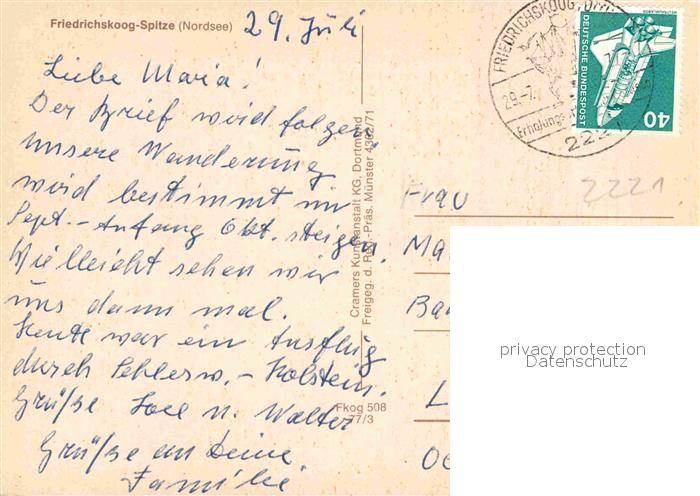 Friedrichskoog-Spitze (Nordsee)
29. Juli
Liebe Maria!
Der Brief wird folgen
unsere Wanderung
wird bestimmt im
Sept. - Anfang Okt. steigen.
Vielleicht sehen wir
uns dann mal.
Heute war ein Ausflug
durch Schlesw. - Holstein.
Grüße u. Walter
Grüße an Deine
Familie
Cramers Kunstanstalt KG. Dortmund
Freigeg. d. Reg.-Präs. Münster 4362/71
Fkog 508
77/3
FRIEDRICHSKOOG
29.-7.
Erholungs
2221
DEUTSCHE BUNDESPOST
40
2221
Frau
Ma
Ba
L
privacy protection
Datenschutz